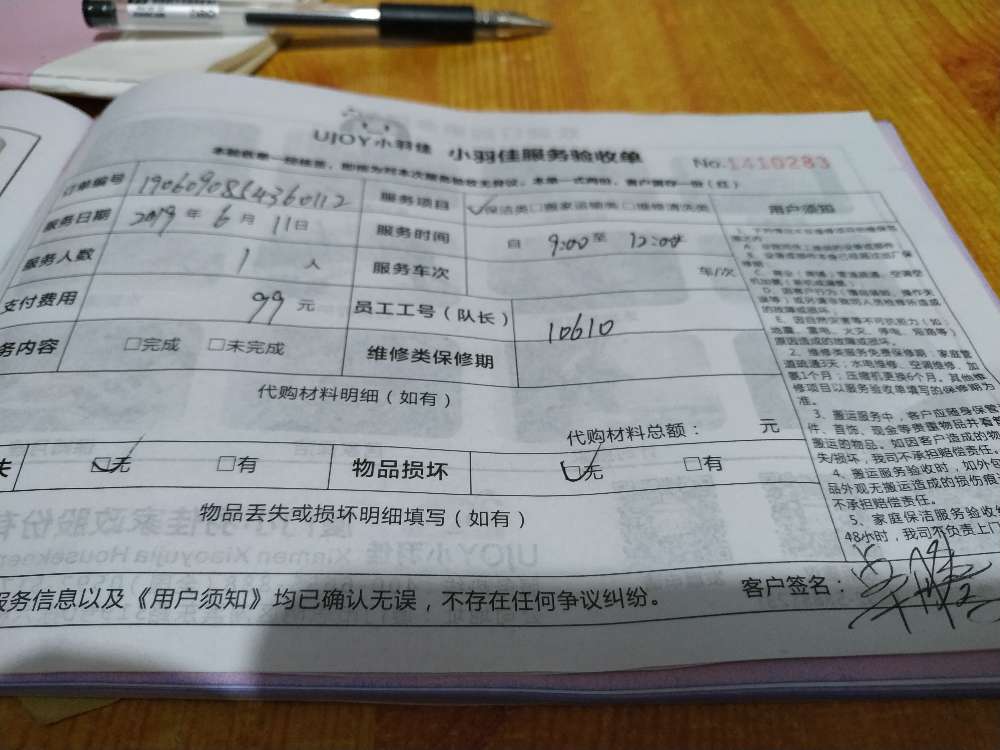 UJOY小羽佳 小羽佳服务验收单 No.1410283
订单编号 1906090864360112 服务项目 保洁类□搬家运输类□维修清洗类
服务日期 2019 年 6 月 11日 服务时间 自 9:00 至 12:00
服务人数 1 人 服务车次 车/次
支付费用 99 元 员工工号（队长） 10610
务内容 □完成 □未完成 维修类保修期
代购材料明细（如有）
代购材料总额： 元
失 □无 □有 物品损坏 □无 □有
物品丢失或损坏明细填写（如有）
服务信息以及《用户须知》均已确认无误，不存在任何争议纠纷。 客户签名：
用户须知
E、因自然灾害等不可抗力（如：
地震、雷电、火灾、停电、短路等）
原因造成的故障或损坏。
2、维修类服务免费保修期：家庭管
道疏通3天，水电维修、空调维修、加
氟1个月；压缩机更换6个月。其他维
修项目以服务验收单填写的保修期为
准。
3、搬运服务中，客户应随身保管
件、首饰、现金等贵重物品并看管
搬运的物品。如因客户造成的物
失/损坏，我司不承担赔偿责任。
4、搬运服务验收时，如外包
品外观无搬运造成的损伤痕
不承担赔偿责任。
5、家庭保洁服务验收
48小时，我司不负责上门